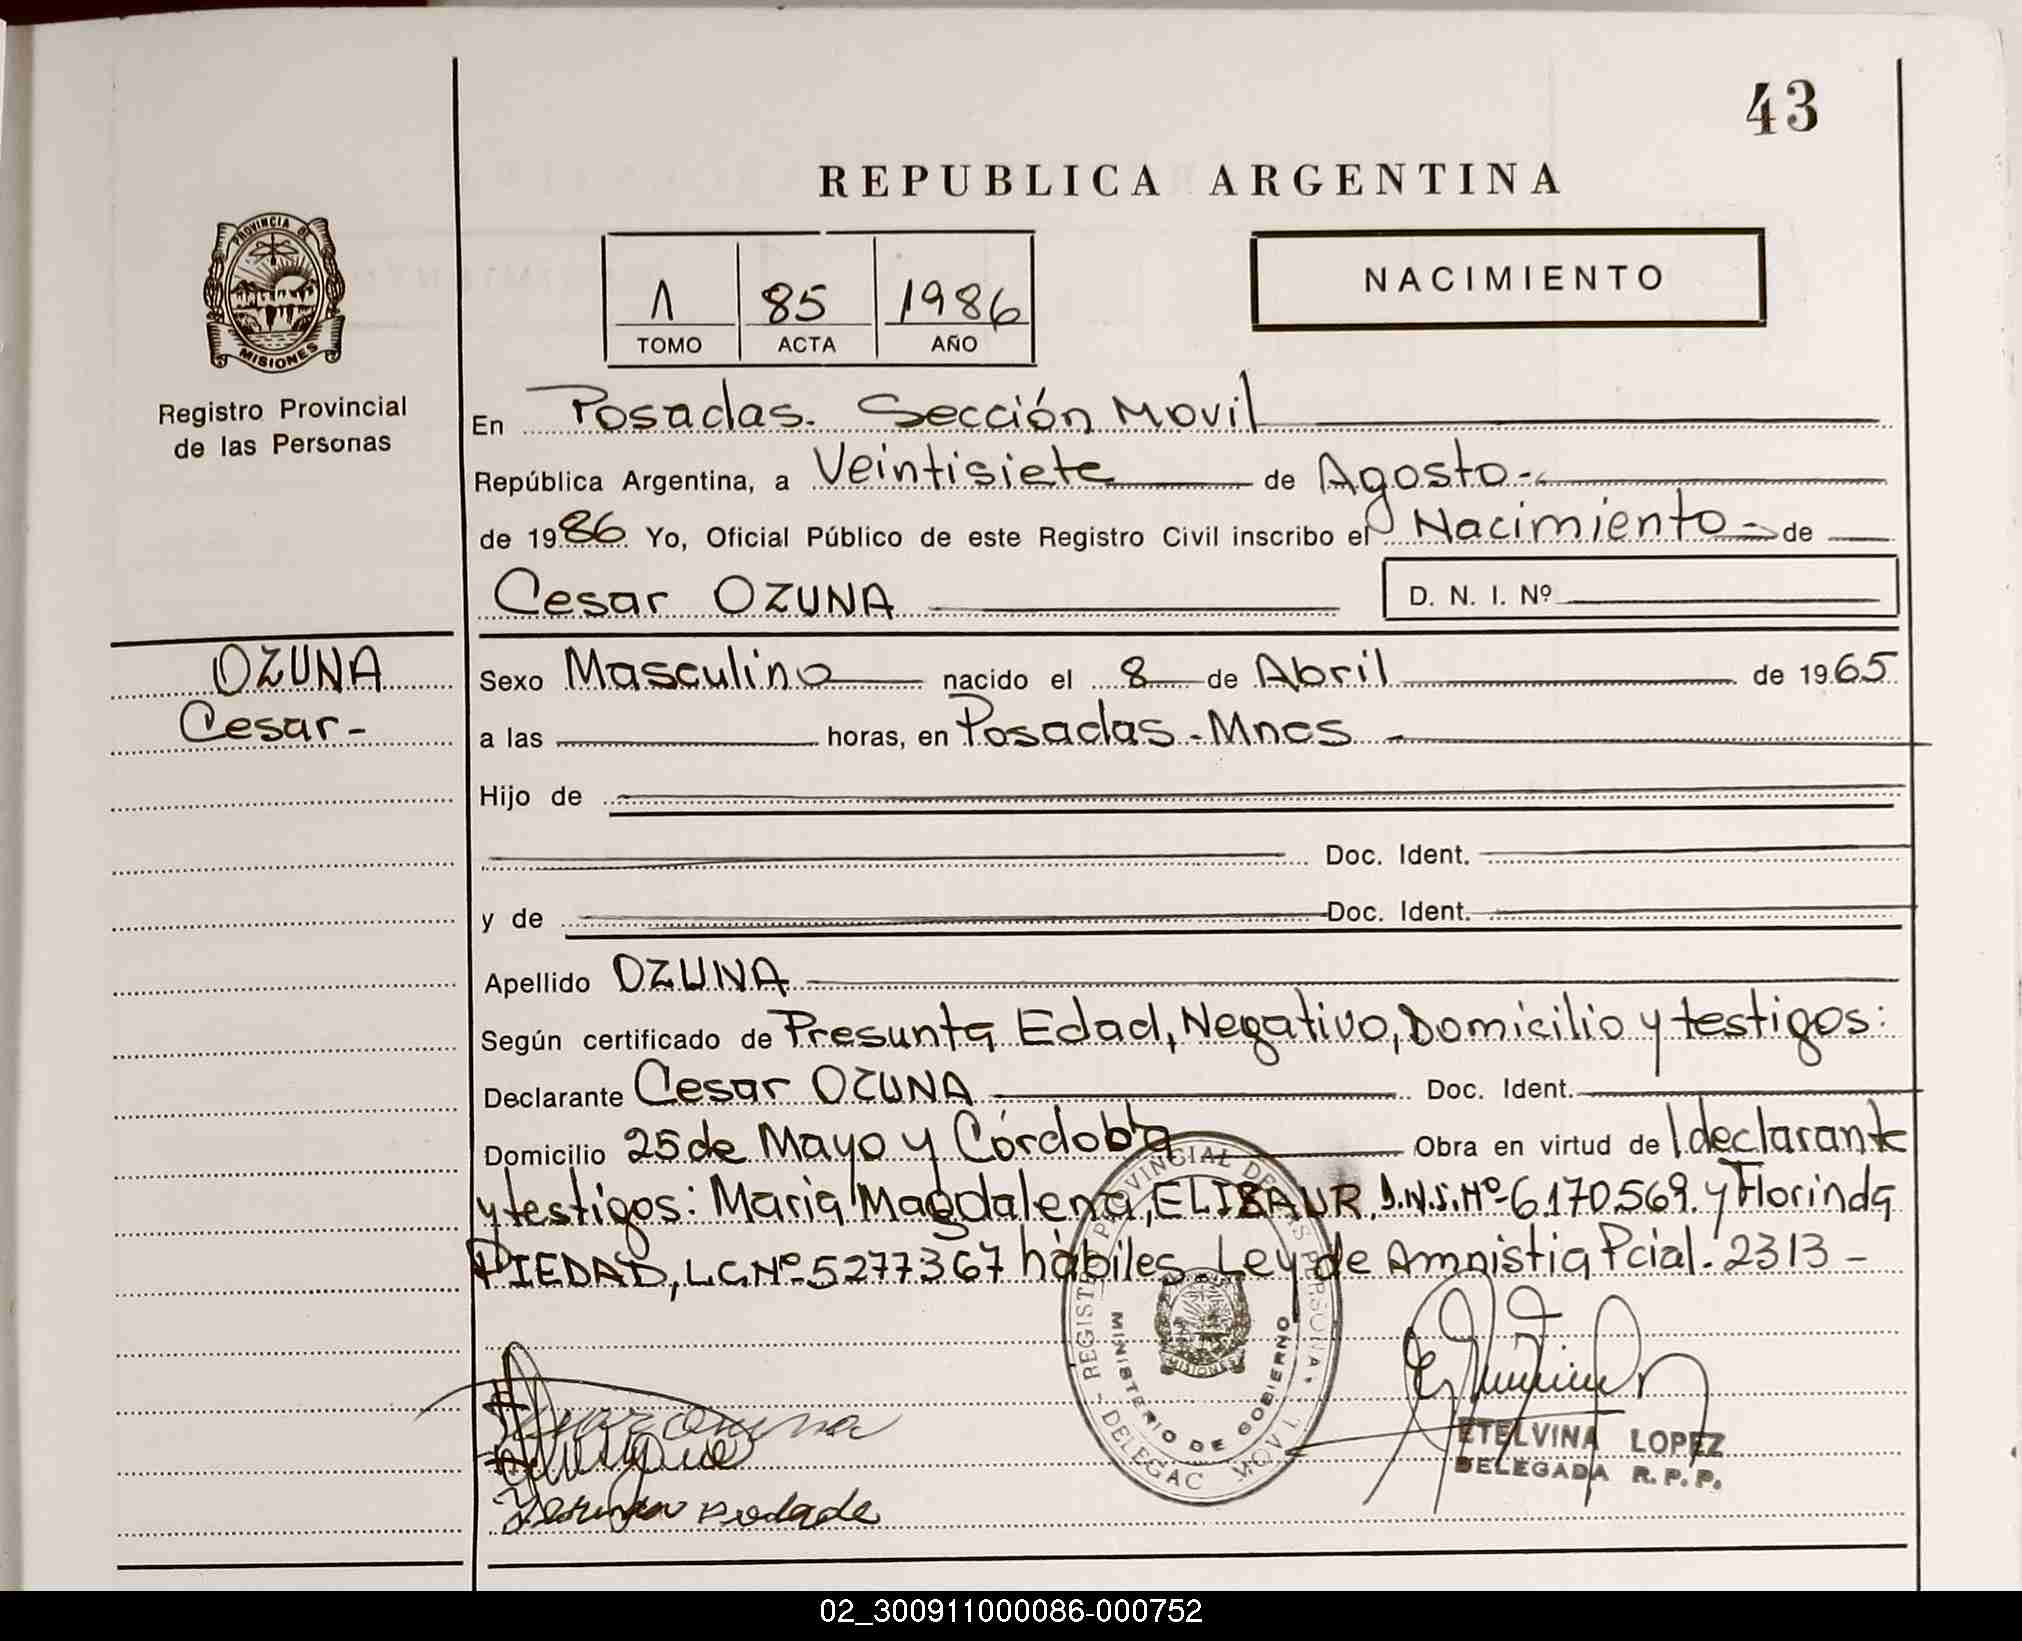 43
REPUBLICA ARGENTINA
PROVINCIA DE
MISIONES
Registro Provincial
de las Personas
1 85 1986
TOMO ACTA AÑO
NACIMIENTO
En Posadas. Sección Movil
República Argentina, a Veintisiete de Agosto-
de 1986 Yo, Oficial Público de este Registro Civil inscribo el Nacimiento - de
Cesar OZUNA D. N. I. Nº
OZUNA
Cesar-
Sexo Masculino nacido el 8 de Abril de 1965
a las horas, en Posadas - Mnes -
Hijo de
Doc. Ident.
y de Doc. Ident.
Apellido OZUNA
Según certificado de Presunta Edad, Negativo, Domicilio y testigos:
Declarante Cesar OZUNA Doc. Ident.
Domicilio 25 de Mayo y Córdoba Obra en virtud de l declarante
y testigos: Maria Magdalena, ELIBAUR, D.N.I. Nº 6.170.569. y Florinda
PIEDAD, L.C.Nº 5277367 hábiles. Ley de Amnistia Pcial. 2313 -
REGISTRO PROVINCIAL DE LAS PERSONAS
MINISTERIO DE GOBIERNO
MISIONES
DELEGAC MOVIL
ETELVINA LOPEZ
DELEGADA R.P.P.
02_300911000086-000752